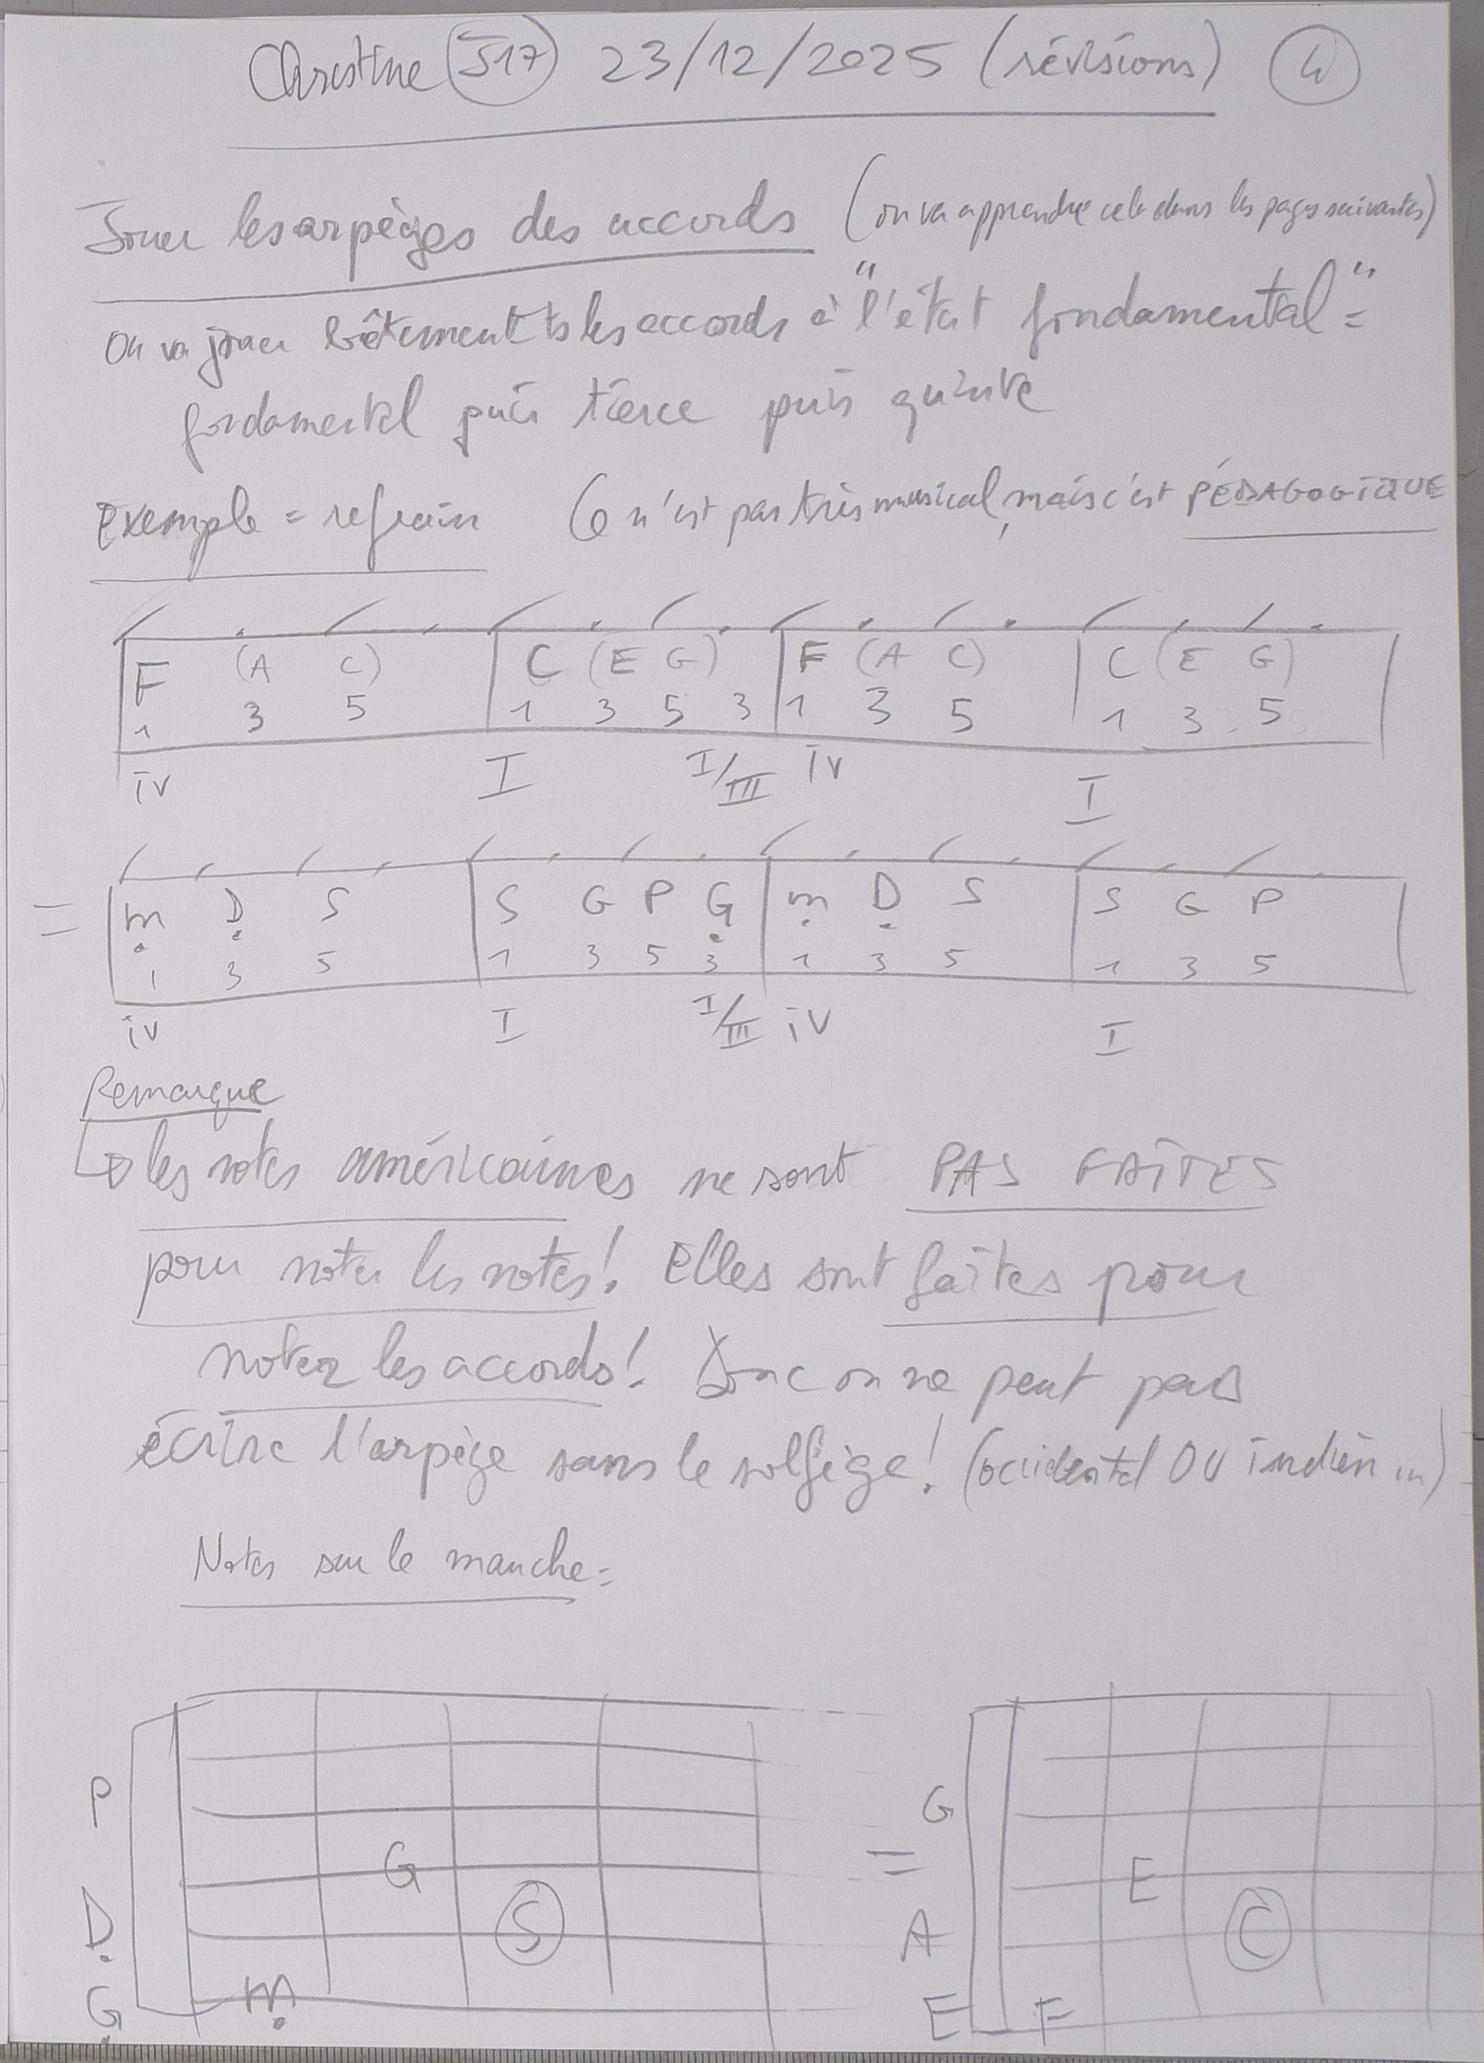 Christine J17 23/12/2025 (révisions) 4
Jouer les arpèges des accords (on va apprendre cela dans les pages suivantes)
on va jouer bêtement ts les accords à "l'état fondamental" =
fondamental puis tierce puis quinte
Exemple = refrain (Ce n'est pas très musical, mais c'est PÉDAGOGIQUE
F (A C) C (E G) F (A C) C (E G)
1 3 5 1 3 5 3 1 3 5 1 3 5
iv I I/III iv I
= m D S S G P G m D S S G P
1 3 5 1 3 5 3 1 3 5 1 3 5
iv I I/III iv I
Remarque
↳ les notes américaines ne sont PAS FAITES
pour noter les notes! Elles sont faites pour
noter les accords! Donc on ne peut pas
écrire l'arpège sans le solfège! (occidental OU indien ...)
Notes sur le manche =
P G
G = E
D S A C
G m E F